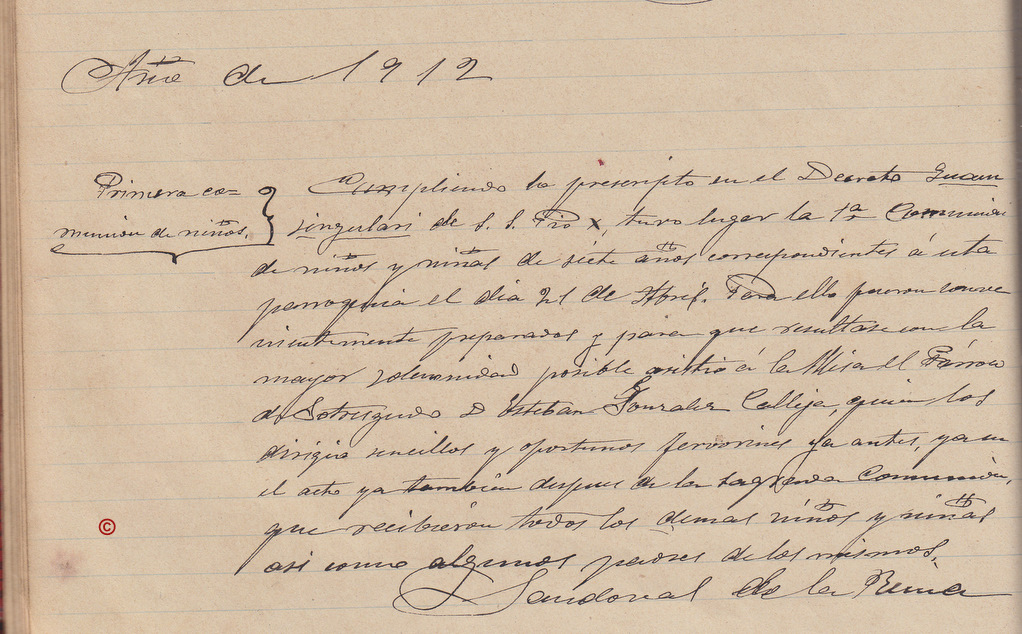 Año de 1912
Primera co=
munion de niños.
Cumpliendo lo prescripto en el Decreto Quam
singulari de S. S. Pio X, tuvo lugar la 1ª Comunion
de niños y niñas de siete años correspondientes á esta
parroquia el dia 21 de Abril. Para ello fueron conve
nientemente preparados y para que resultase con la
mayor solemnidad posible asistió á la Misa el Párroco
de Sotresgudo D Esteban Gonzalez Calleja, quien los
dirigia sencillos y oportunos fervorines ya antes, ya en
el acto ya tambien despues de la sagrada Comunión,
que recibieron todos los demas niños y niñas
asi como algunos padres de los mismos.
Sandoval de la Reina
©